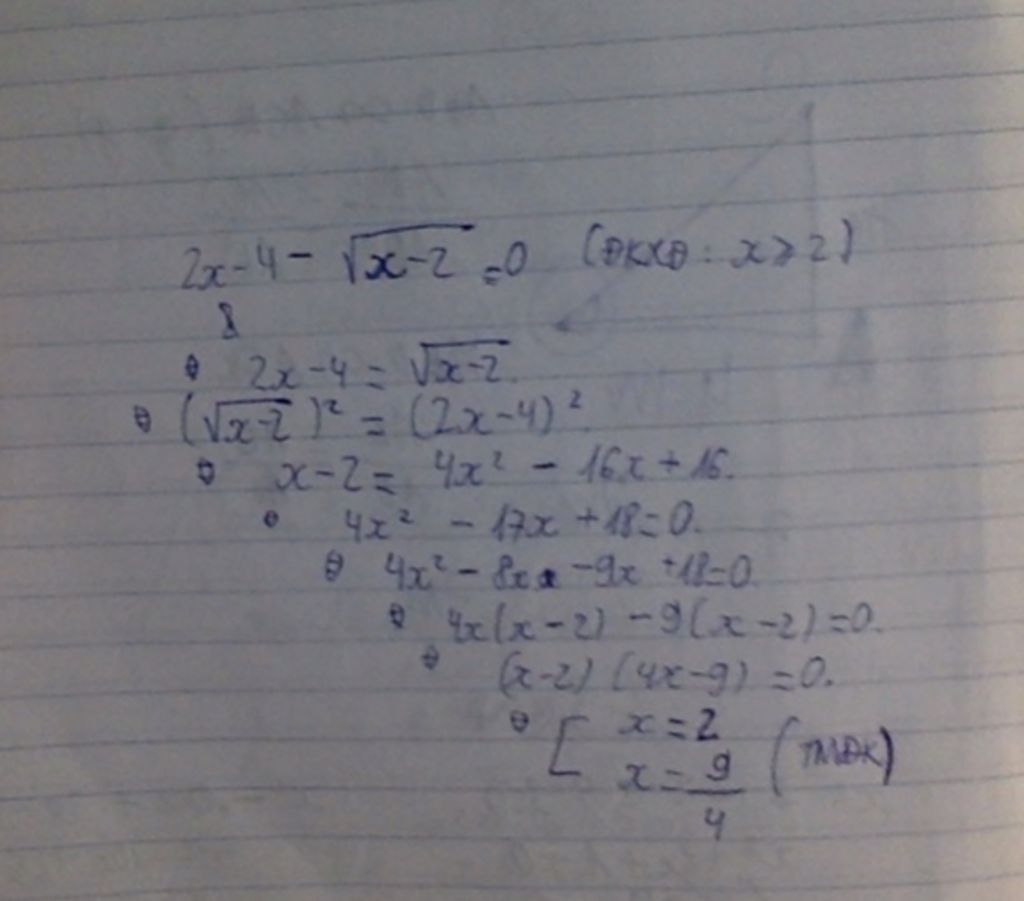 2x-4-√(x-2) =0 (ĐKXĐ: x≥2)
⇔ 2x-4 = √(x-2).
⇔ (√(x-2))² = (2x-4)².
⇔ x-2 = 4x² - 16x + 16.
⇔ 4x² - 17x + 18 = 0.
⇔ 4x² - 8x - 9x + 18 = 0
⇔ 4x(x-2) - 9(x-2) = 0.
⇔ (x-2)(4x-9) = 0.
⇔ [ x = 2
x = 9/4 (TMĐK)